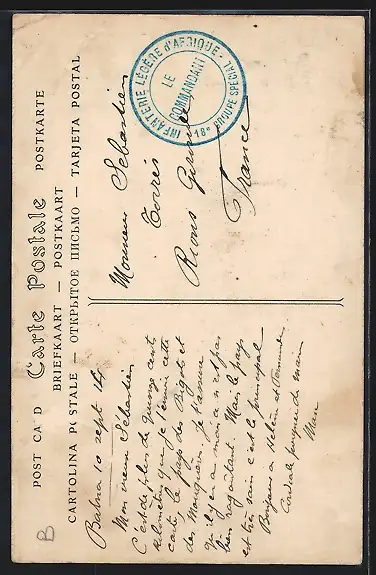 POST CA D Carte Postale POSTKARTE
BRIEFKAART — POSTKAART
CARTOLINA POSTALE — ОТКРЫТОЕ ПИСЬМО — TARJETA POSTAL
INFANTERIE LÉGÈRE d'AFRIQUE
LE
COMMANDANT
18e GROUPE SPÉCIAL
Monsieur Sebastien
Torrés
Rions Gironde
France
Batna 10 sept 14
Mon vieux Sébastien
C'est de plus de quinze cents
kilomètres que je t'envoie cette
carte, le pays des Bicots et
des Mouquères, je t'assure
qu'il y en a mais ce n'est pas
bien ragoûtant. Mais le pays
est très sain c'est le principal
Bonjour à Hélène et
Cordiale poignée de main
Marc
B